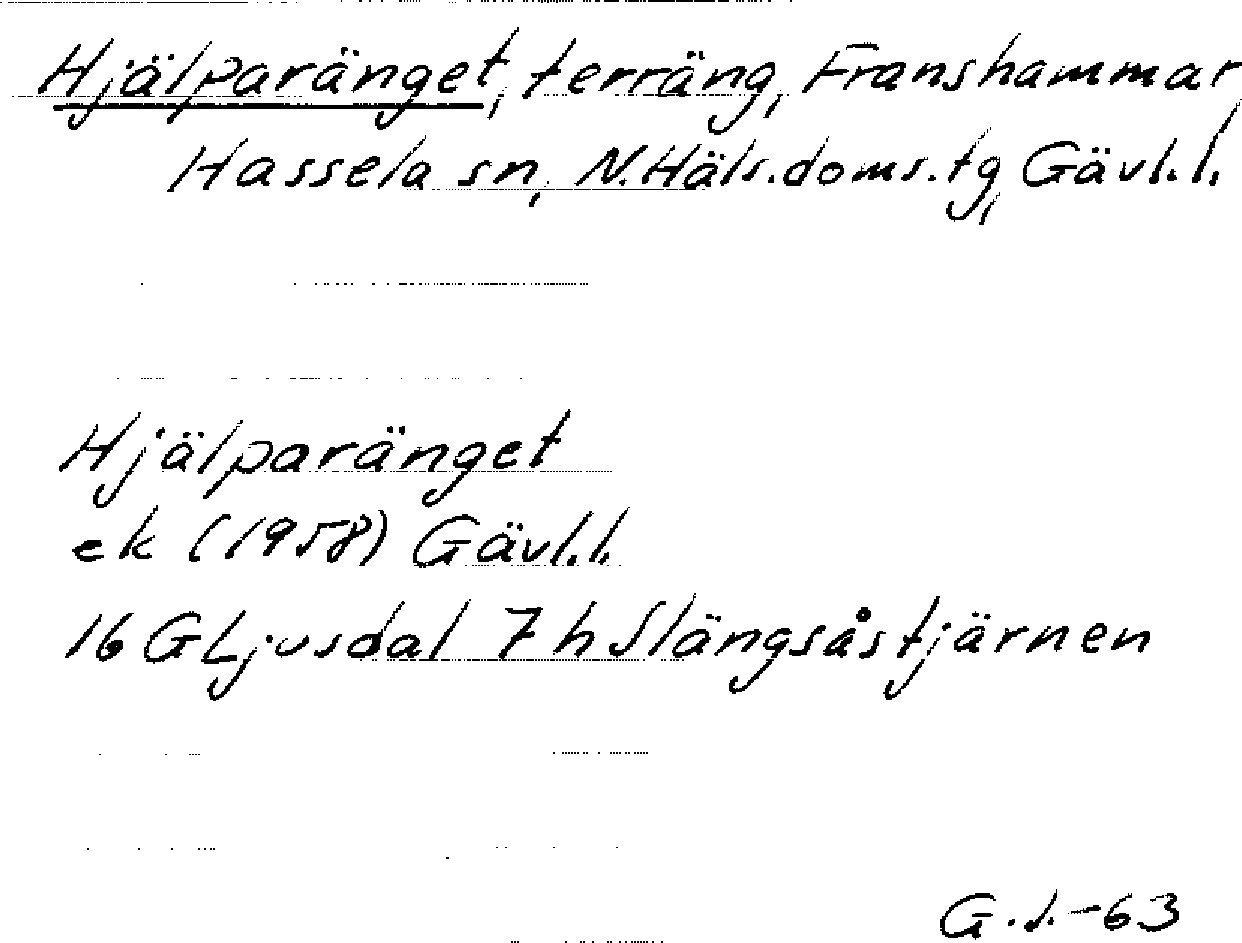 Hjälparänget, terräng, Franshammar,
Hassela sn, N.Häls.doms.tg, Gävl.l.
Hjälparänget
ek (1958) Gävl.l.
16 G Ljusdal 7 h Slängsåstjärnen
G.S.-63